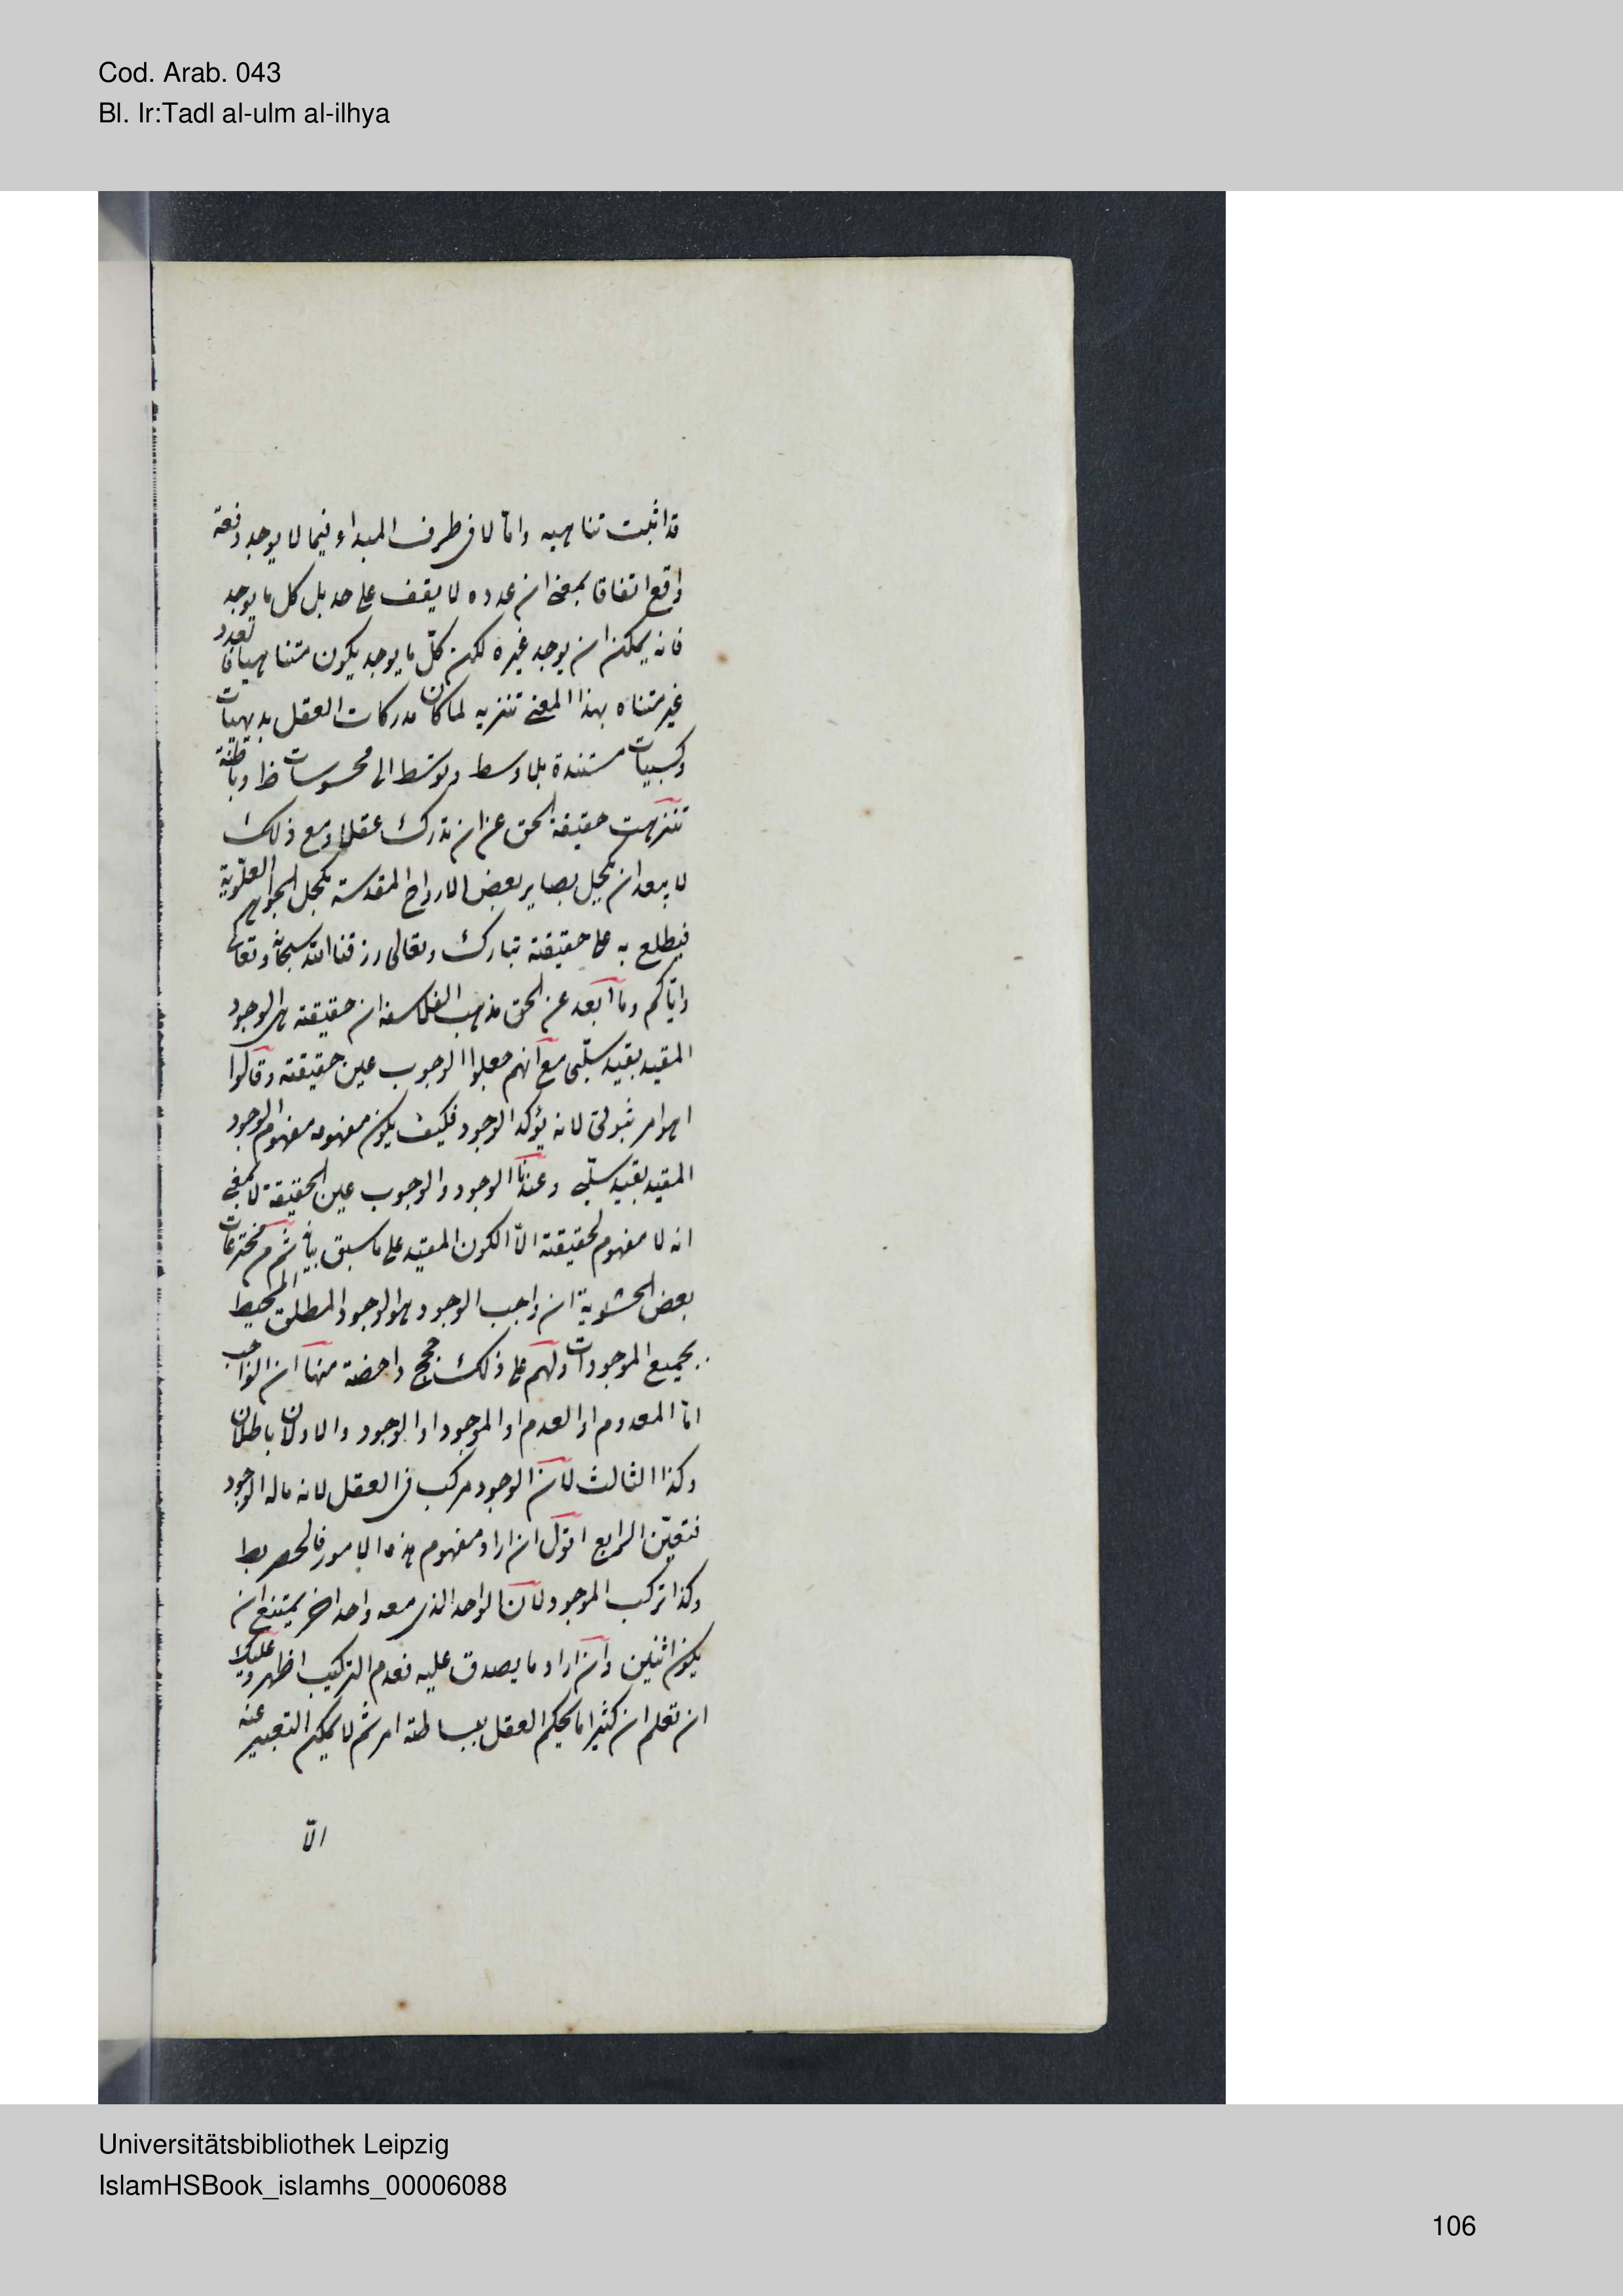 Cod. Arab. 043
Bl. Ir:Tadl al-ulm al-ilhya
قد اثبت تناهيه واما لا فى طرف المبداء فيما لا يوجد دفعة
واقع اتفاقا بمعنى ان عدده لا يقف على حد بل كل ما يوجد
فانه يمكن ان يوجد غيره لكن كلّ ما يوجد يكون متناهيا تعدد
غير متناه بهذا المعنى تنزيه لما كان مدركات العقل بديهيات
وكسبيات مستندة بلا وسط وبوسط الى محسوسات ظ وباطنة
تنزهت حقيقة الحق عن ان تدرك عقلا ومع ذلك
لا يبعد ان يكحل بصاير بعض الارواح المقدسة بكحل الجواهر العلوية
فيطلع به على حقيقته تبارك وتعالى رزقنا الله سبحانه وتعالى
واياكم وما ابعد عن الحق مذهب الفلاسفة ان حقيقته هى الوجود
المقيد بقيد سلبى مع انهم جعلوا الوجوب عين حقيقته وقالوا
هو امر ثبوتى لانه يؤكد الوجود فكيف يكون مفهومه مفهوم الوجود
المقيد بقيد سلبى وعندنا الوجود والوجوب عين الحقيقة لا بمعنى
انه لا مفهوم لحقيقته الا الكون المقيد على ما سبق بيانه ثم من مخترعات
بعض الحشوية ان واجب الوجود هو الوجود المطلق المحيط
بجميع الموجودات ولهم على ذلك حجج داحضة منها ان الواجب
اما المعدوم او العدم او الموجود او الوجود والاولان باطلان
وكذا الثالث لان الوجود مركب فى العقل لانه ماله الوجود
فتعيّن الرابع اقول ان اراد مفهوم هذه الامور فالحصر بط
وكذا تركب الموجود لان الواحد الذى معه واحد اخر يمتنع ان
يكون اثنين وان اراد ما يصدق عليه فعدم التركيب اظهر وعليك
ان تعلم ان كثيرا ما يحكم العقل ببساطة امر ثم لا يمكن التعبير عنه
الّا
Universitätsbibliothek Leipzig
IslamHSBook_islamhs_00006088
106